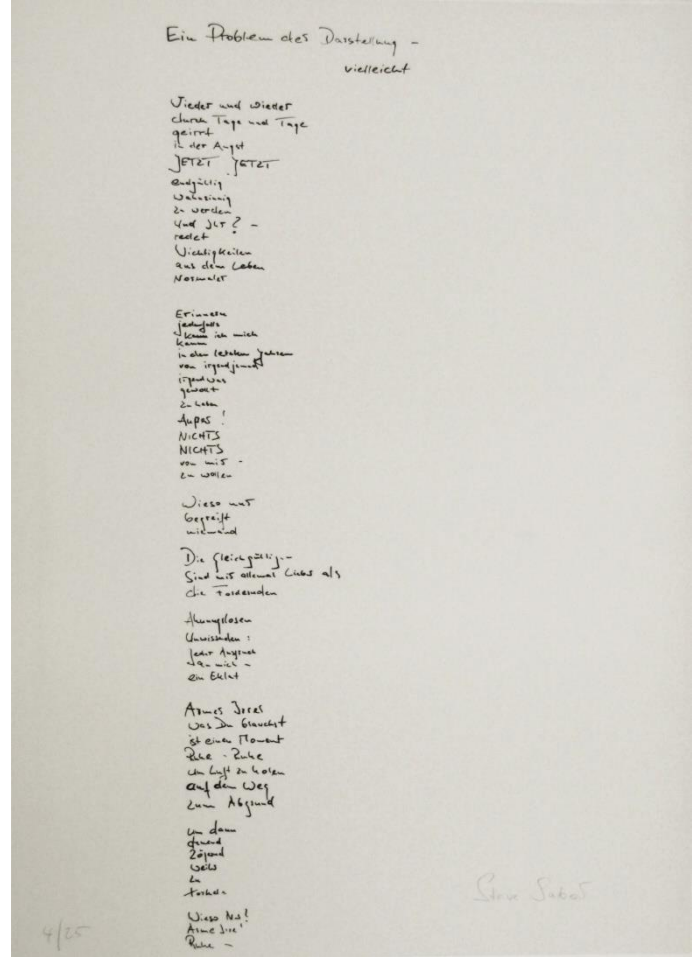 Ein Problem der Darstellung –
vielleicht
Wieder und wieder
durch Tage und Tage
geirrt
in der Angst
JETZT JETZT
endgültig
wahnsinnig
zu werden
Und Ihr? –
redet
Wichtigkeiten
aus dem Leben
Normaler
Erinnern
jedenfalls
kann ich mich
kaum
in den letzten Jahren
von irgendjemand
irgendwas
gewollt
zu haben
NICHTS
NICHTS
von mir –
zu wollen
Wieso nur
begreift
niemand
Die Gleichgültigen
Sind mir allemal lieber als
die Fordernden
Ahnungslosen
Unwissenden :
jeder Anspruch
an mich –
ein Eklat
Armes Irres
was Du brauchst
ist einen Moment
Ruhe - Ruhe
um Luft zu holen
auf dem Weg
zum Abgrund
um dann
zögernd
zu
Wieso Nur!
Arme Irre!
Ruhe –
4/25